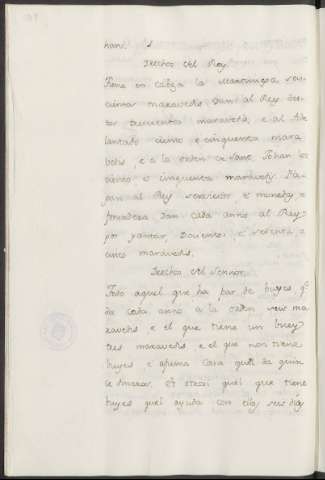 Drechos del Rey.
Tiene en cabeza la Martiniega seis
cientos maravedis dan al Rey des
tos trecientos maravedis, e al Ade
lantado ciento e cinquenta mara
bedis, e a la orden de Sant Johan los
ciento e cinquenta maravedis. Pa-
gan al Rey servicios e moneda e
fonsadera. Dan cada anno al Rey
por yantar, docientos e sesenta e
cinco maravedis.
Drechos del Sennor.
Todo aquel que ha par de bueyes q.e
da cada anno a la orden seis ma
ravedis e el que tiene un buey
tres maravedis e el que non tiene
bueyes e apema casa quel da quin
ce dineros. Et otrosi quel que tiene
bueyes quel ayuda con ellos seis dias